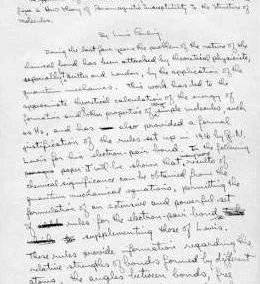 from a New Theory of Paramagnetic Susceptibility to the Structure of
Molecules.
By Linus Pauling
During the last four years the problem of the nature of the
chemical bond has been attacked by theoretical physicists,
especially Heitler and London, by the application of the
quantum mechanics. This work has led to the
approximate theoretical calculation of the energy of
formation and other properties of simple molecules, such
as H2, and has also provided a formal
justification of the rules set up in 1916 by G. N.
Lewis for his electron-pair bond. In the following
paper it will be shown that results of
chemical significance can be obtained from the
quantum mechanical equations, permitting the
formulation of an extensive and powerful set
of rules for the electron-pair bond
supplementing those of Lewis.
These rules provide information regarding the
relative strengths of bonds formed by different
atoms, the angles between bonds, free